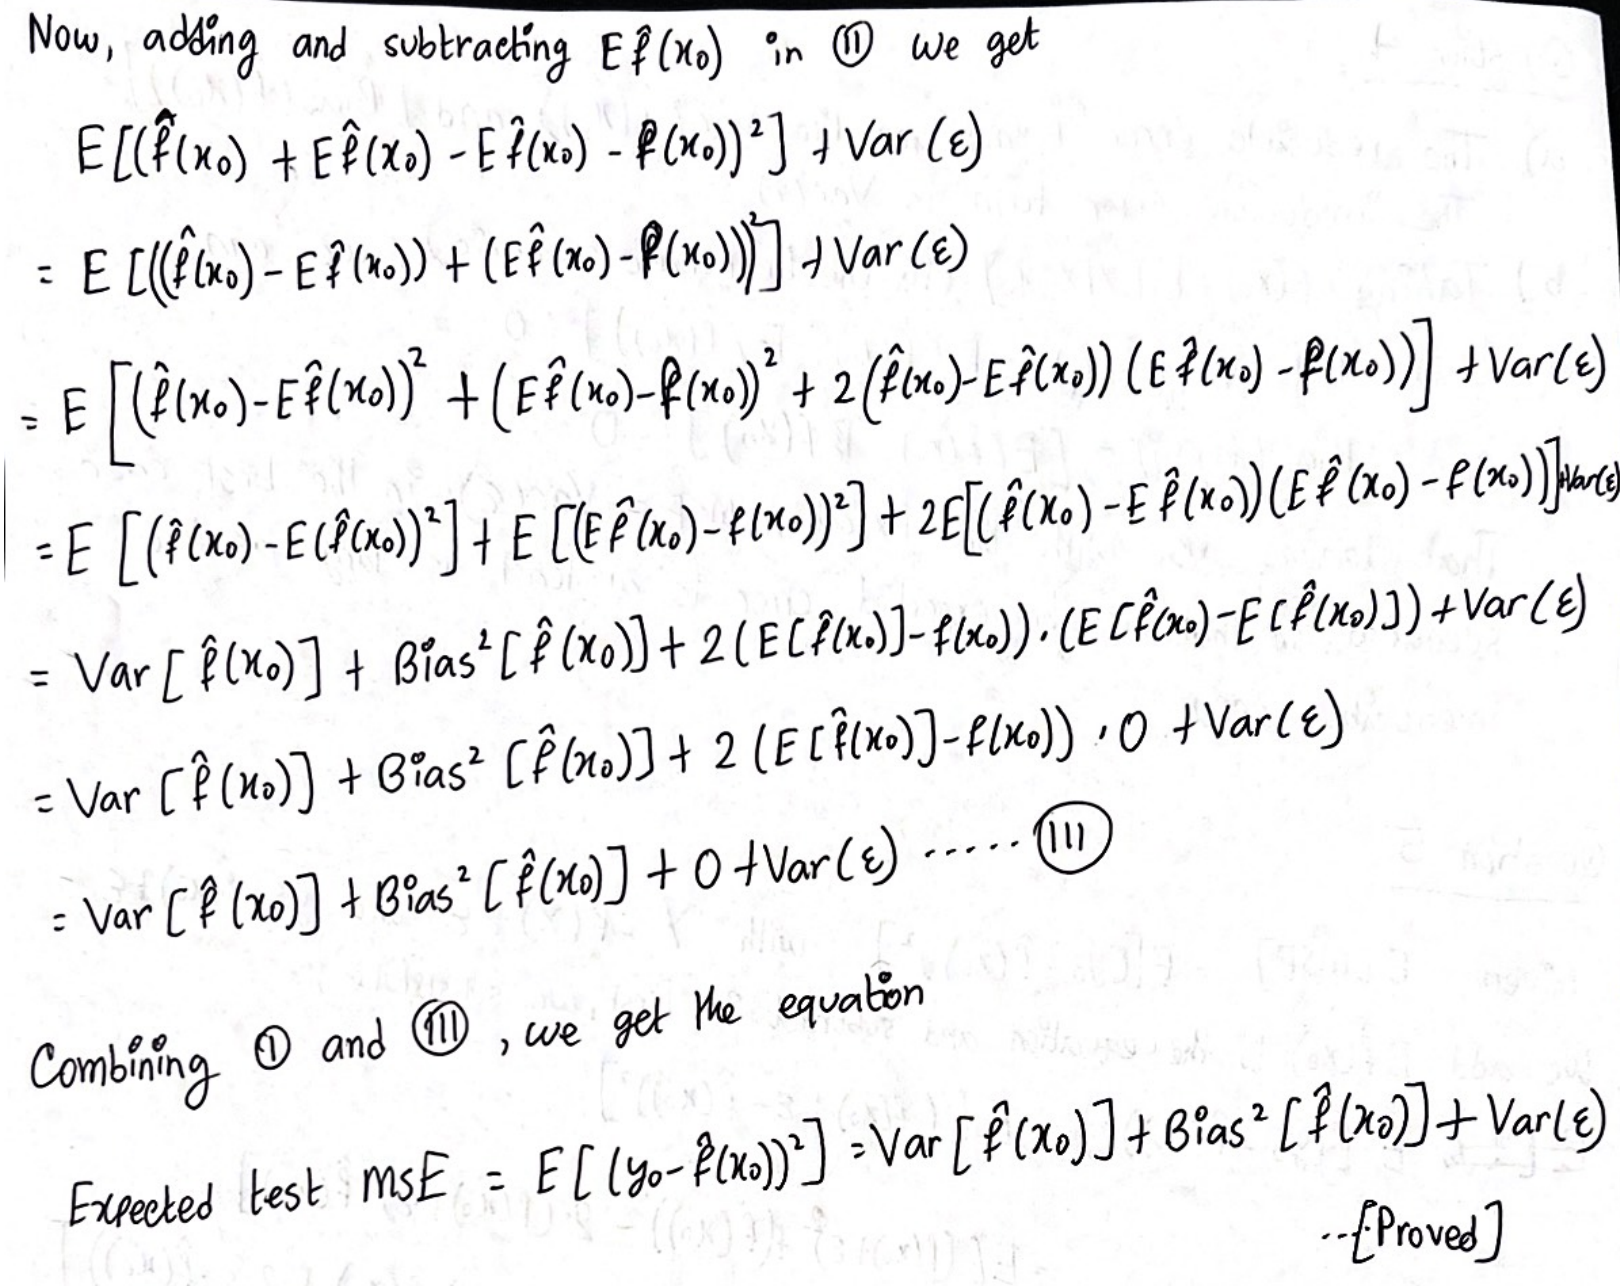 Now, adding and subtracting E f̂(x₀) in (II) we get
E[(f̂(x₀) + E f̂(x₀) - E f̂(x₀) - f(x₀))²] + Var(ε)
= E[((f̂(x₀) - E f̂(x₀)) + (E f̂(x₀) - f(x₀)))²] + Var(ε)
= E[(f̂(x₀) - E f̂(x₀))² + (E f̂(x₀) - f(x₀))² + 2(f̂(x₀) - E f̂(x₀)) (E f̂(x₀) - f(x₀))] + Var(ε)
= E[(f̂(x₀) - E(f̂(x₀))²] + E[(E f̂(x₀) - f(x₀))²] + 2E[(f̂(x₀) - E f̂(x₀)) (E f̂(x₀) - f(x₀))] + Var(ε)
= Var[f̂(x₀)] + Bias²[f̂(x₀)] + 2(E[f̂(x₀)] - f(x₀)) . (E[f̂(x₀) - E[f̂(x₀)]) + Var(ε)
= Var[f̂(x₀)] + Bias²[f̂(x₀)] + 2(E[f̂(x₀)] - f(x₀)) . 0 + Var(ε)
= Var[f̂(x₀)] + Bias²[f̂(x₀)] + 0 + Var(ε) ..... (III)
Combining (I) and (III), we get the equation
Expected test MSE = E[(y₀ - f̂(x₀))²] = Var[f̂(x₀)] + Bias²[f̂(x₀)] + Var(ε)
..[Proved]